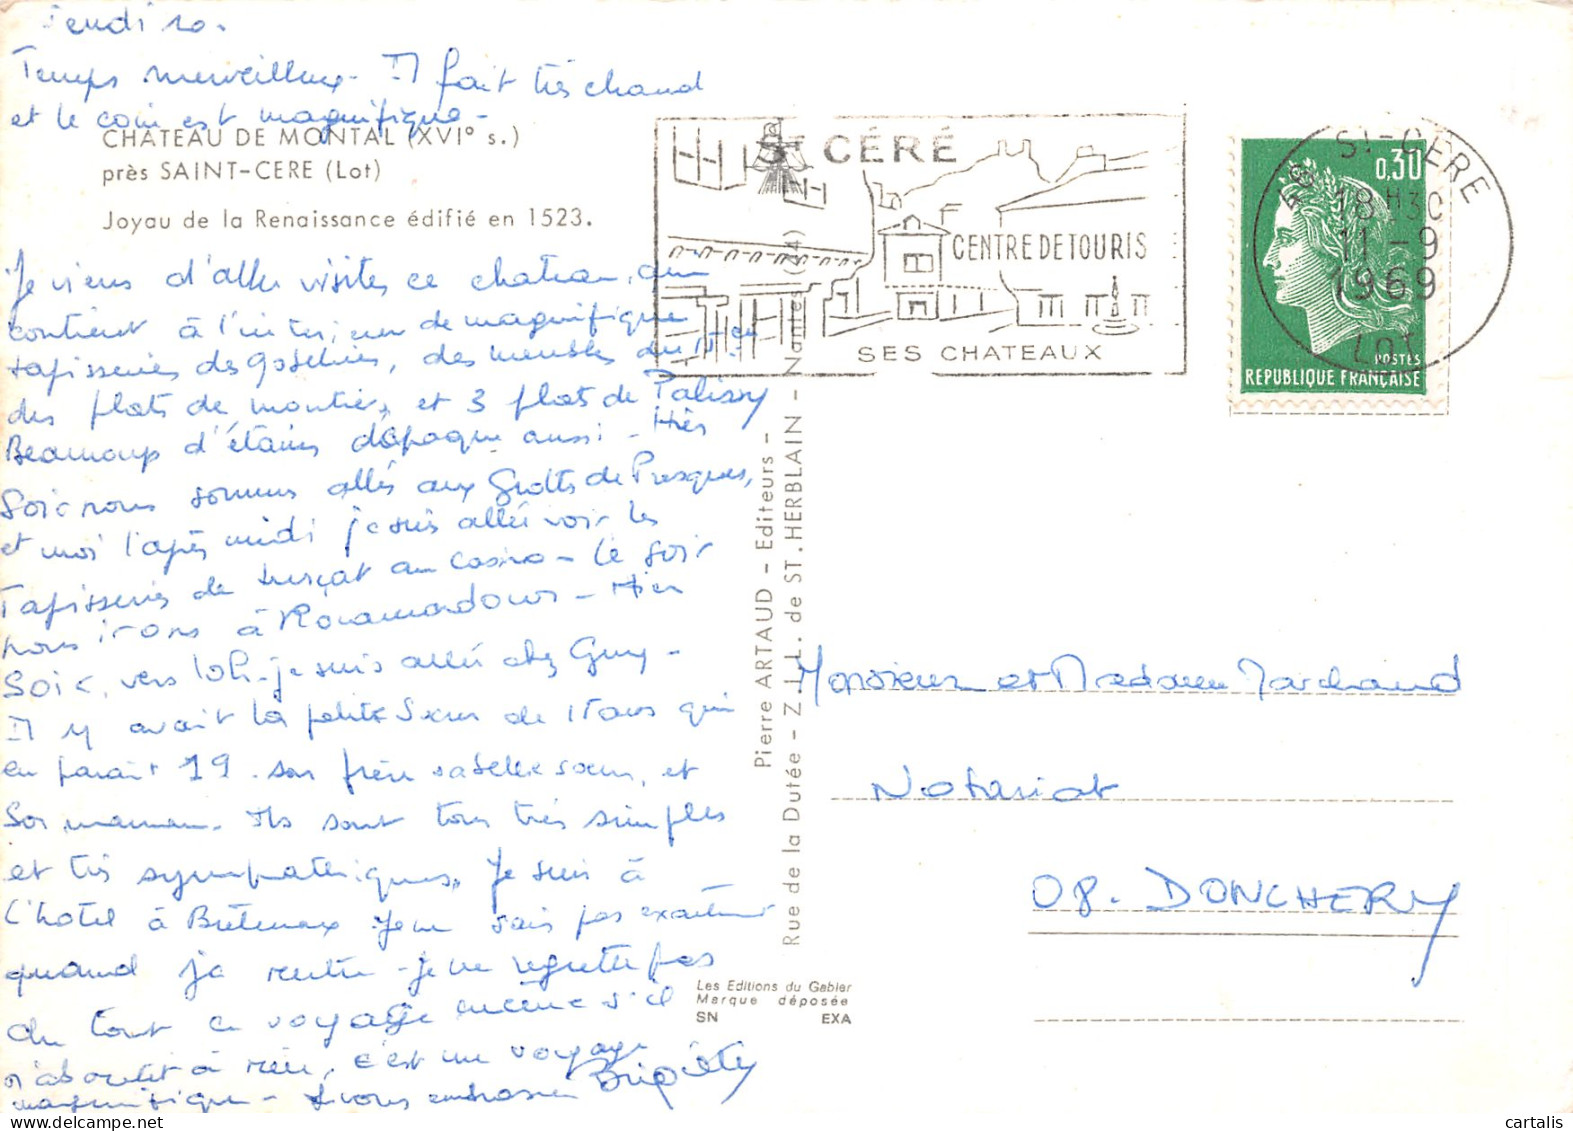 Jeudi 10.
Temps merveilleux - Il fait très chaud
et le coin est magnifique -
CHATEAU DE MONTAL (XVIº s.)
près SAINT-CERE (Lot)
Joyau de la Renaissance édifié en 1523.
Je viens d'aller visiter ce chateau, qui
contient à l'intérieur de magnifique
tapisseries des gobelins, des meubles du
des plats de moutiers, et 3 plats de Palissy
Beaucoup d'étains d'époque aussi - Hier
Soir nous sommes allés aux Grottes de Presques,
et moi l'après midi je suis allée voir les
Tapisseries de Lurçat au casino - Ce soir
nous irons à Rocamadour - Hier
Soir, vers 10h - je suis allée chez Guy -
Il y avait la petite Soeur de 15 ans qui
en parait 19. son frère sa belle soeur, et
Sa maman. Ils sont tous très simples
et très sympathiques. Je suis à
l'hotel à Bretenoux. Je ne sais pas exactement
quand je rentre - je ne regrette pas
du tout ce voyage même s'il
n'aboutit à rien, c'est un voyage
magnifique - Je vous embrasse Brigitte
ST CÉRÉ
CENTRE DE TOURIS
SES CHATEAUX
46 ST-CERE
18 H 30
11 - 9
1969
LOT
0,30
POSTES
REPUBLIQUE FRANÇAISE
Pierre ARTAUD - Editeurs -
Rue de la Dutée - Z.I.L. de ST. HERBLAIN - Nantes (44)
Monsieur et Madame Marchand
Notariat
08. DONCHERY
Les Editions du Gabier
Marque déposée
SN EXA
cartalis